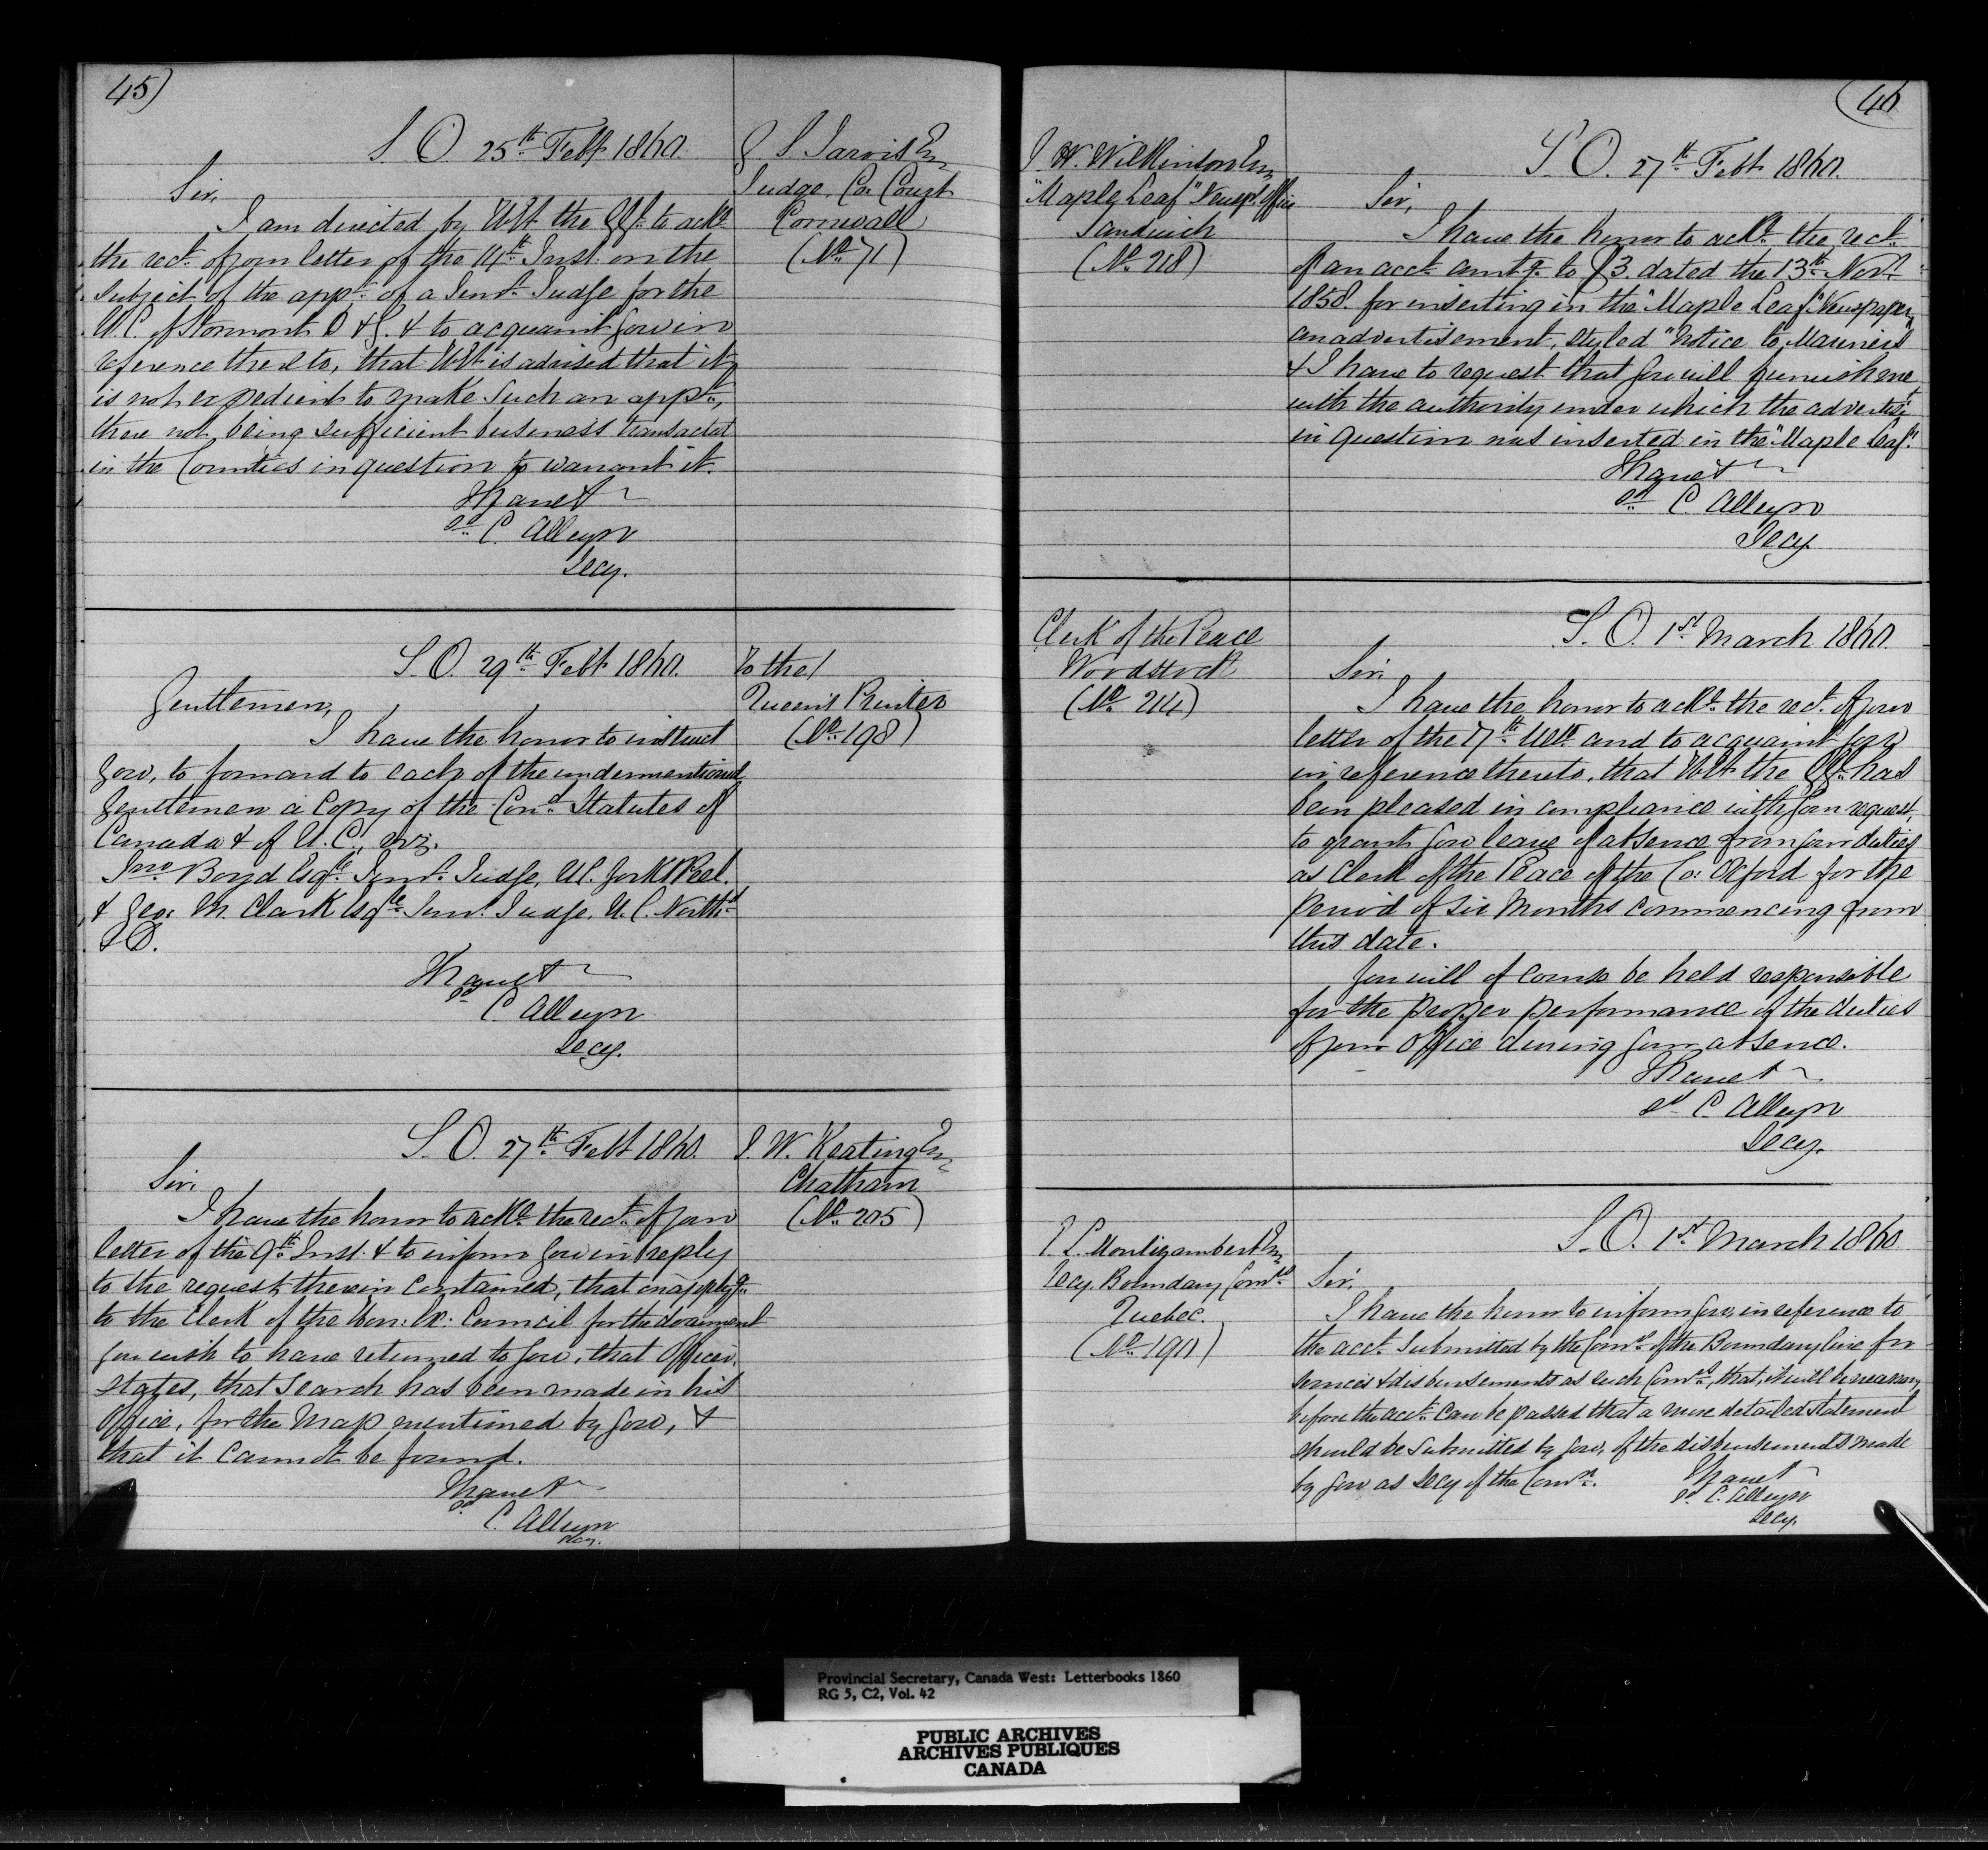 45)
S. O. 25th Feby 1860.
G S Jarvis Esq
Judge, Co. Court
Cornwall
(No. 71)
Sir,
I am directed by H E the G G. to ackе
the rect. of your letter of the 14th Inst. on the
subject of the appt. of a Junr. Judge for the
U. C. of Stormont D & G. & to acquaint you in
reference thereto, that H E is advised that it
is not expedient to make such an appt.,
there not being sufficient business transacted
in the Counties in question to warrant it.
I have &c
sd. C. Alleyn
Secy.
S. O. 29th Feby 1860.
To the
Queen's Printer
(No. 198)
Gentlemen,
I have the honor to instruct
you, to forward to each of the undermentioned
Gentlemen a Copy of the Cond. Statutes of
Canada & of U. C., viz.
Jno Boyd Esqre. Junr. Judge, U C. York & Peel.
& Geo: M. Clark Esqre. Junr. Judge, U. C. Northd
& D.
I have &c
sd C. Alleyn
Secy.
S. O. 27th Feby 1860.
J. W. Keating Esq
Chatham
(No. 205)
Sir,
I have the honor to acke. the rect. of your
letter of the 9th Inst. & to inform you in reply
to the request therein contained, that on applyg.
to the Clerk of the Hon: Ex: Council for the document
you wish to have returned to you, that Officer,
states, that search has been made in his
Office, for the Map mentioned by you, &
that it cannot be found.
I have &c
sd. C. Alleyn
Secy.
46
J. W. Wilkinson Esq
"Maple Leaf" Newspr. Office
Sandwich
(No. 218)
S. O. 27th Feby 1860.
Sir,
I have the honor to acke. the rect.
of an acct. amtg. to $3. dated the 13th Novr.
1858. for inserting in the "Maple Leaf" Newspaper,
an advertisement, styled "Notice to Mariners
& I have to request that you will furnish me
with the authority under which the advertist
in question was inserted in the "Maple Leaf".
I have &c
sd. C Alleyn
Secy.
Clerk of the Peace
Woodstock
(No. 214)
S. O. 1st March 1860.
Sir,
I have the honor to acke. the rect. of your
letter of the 17th Ulto. and to acquaint you
in reference thereto, that H E the G G. has
been pleased in compliance with your request,
to grant you leave of absence from your duties
as Clerk of the Peace of the Co: Oxford for the
period of Six Months commencing from
this date.
You will of course be held responsible
for the proper performance of the duties
of your Office during your absence.
I have &c
sd. C. Alleyn
Secy.
Montizambert Esq
Secy. Boundary Comrs.
Quebec.
(No. 190)
S. O. 1st March 1860.
Sir,
I have the honor to inform you, in reference to
the acct. submitted by the Comrs. of the Boundary line for
services & disbursements as such Comrs., that, it will be necessary
before the acct. can be passed that a more detailed statement
should be submitted by you, of the disbursements made
by you as Secy of the Comrs.
I have &c
sd. C. Alleyn
Secy.
Provincial Secretary, Canada West: Letterbooks 1860
RG 5, C2, Vol. 42
PUBLIC ARCHIVES
ARCHIVES PUBLIQUES
CANADA